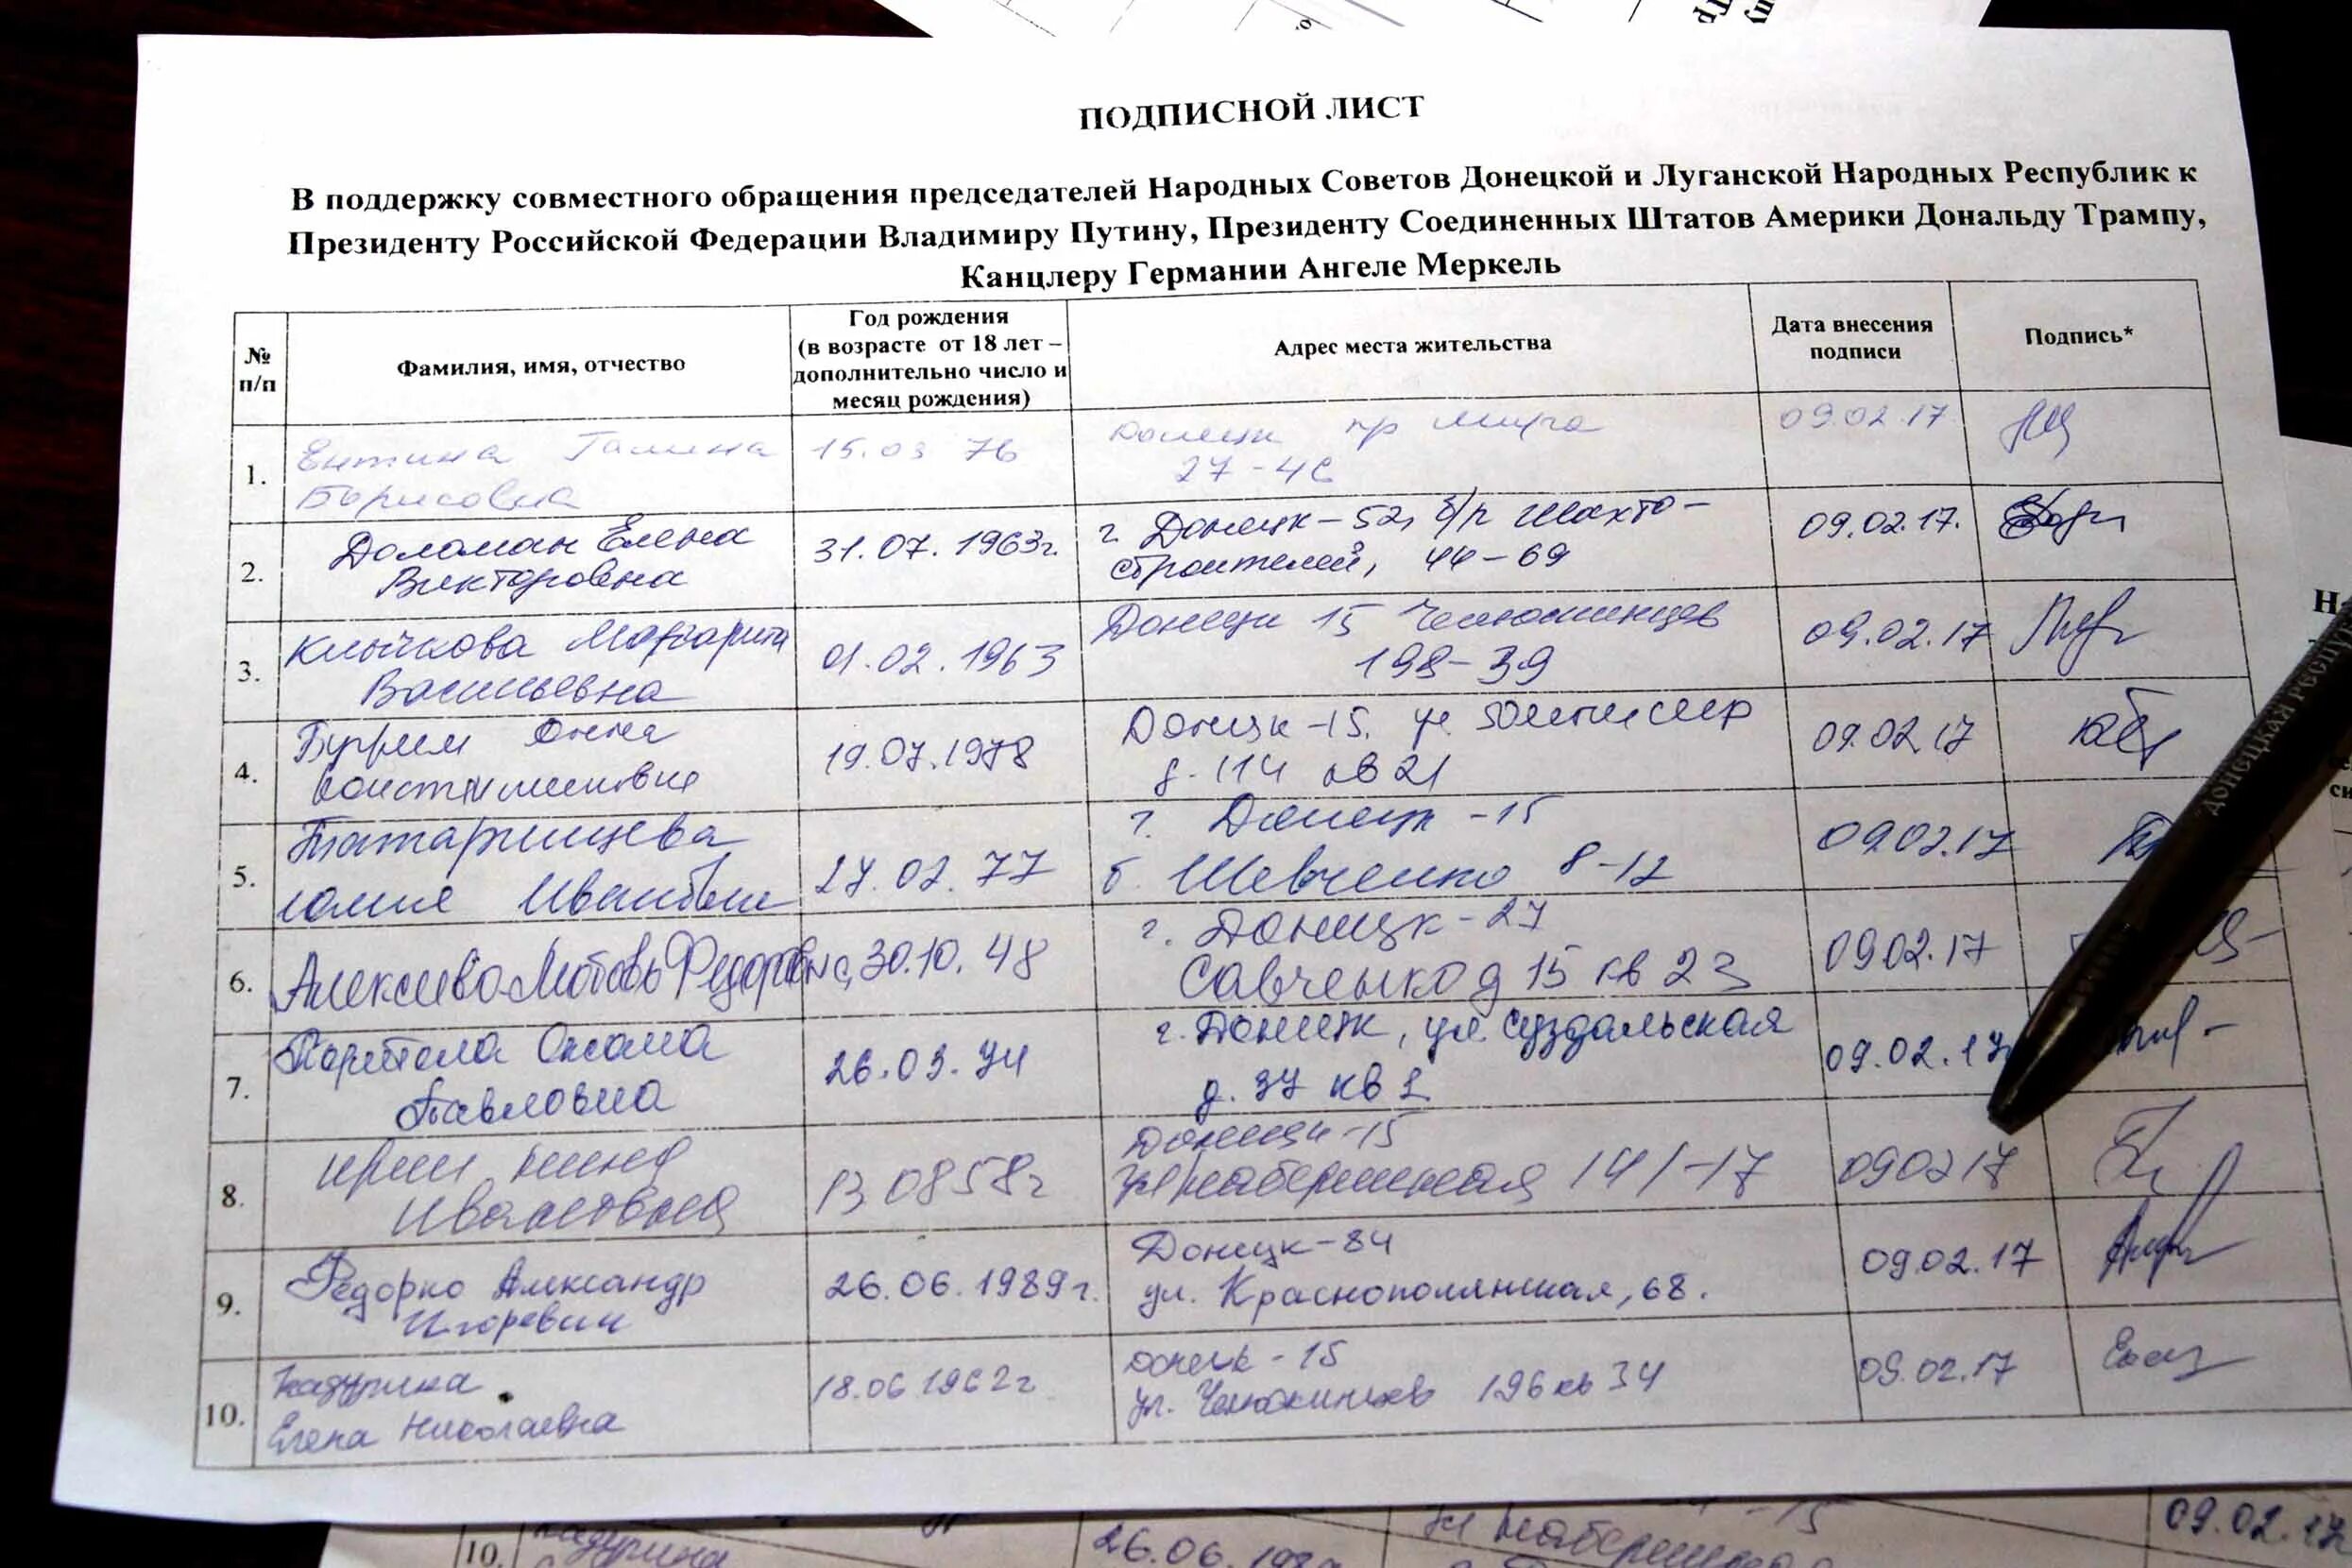 ПОДПИСНОЙ ЛИСТ
В поддержку совместного обращения председателей Народных Советов Донецкой и Луганской Народных Республик к
Президенту Российской Федерации Владимиру Путину, Президенту Соединенных Штатов Америки Дональду Трампу,
Канцлеру Германии Ангеле Меркель
№ п/п
Фамилия, имя, отчество
Год рождения
(в возрасте от 18 лет –
дополнительно число и
месяц рождения)
Адрес места жительства
Дата внесения
подписи
Подпись*
1.
Галина
Борисовна
15.03 76
Донецк пр Мира
09.02.17
2.
Доломан Елена
Викторовна
31.07.1963г.
г. Донецк-52, б/р Шахто-
строителей, 44-69
09.02.17.
3.
Клычкова Маргарита
Васильевна
01.02.1963
Донецк 15 Челюскинцев
198-39
09.02.17
4.
Константиновна
19.07.1978
Донецк-15.
д. 114 кв 21
09.02.17
5.
Татаринцева
Ивановна
27.02.77
г. Донецк-15
б. Шевченко 8-12
09.02.17
6.
Алексеева Любовь Федоровна
30.10.48
г. Донецк-27
Савченко д 15 кв 23
09.02.17
7.
Оксана
Павловна
26.03.74
г. Донецк, ул. Суздальская
д. 37 кв 1
09.02.17
8.
Ивановна
13 08 58г
Донецк-15
Набережная
09 02 17
9.
Федорко Александр
Игоревич
26.06.1989г.
Донецк-84
ул. Краснополянская, 68.
09.02.17
10.
Кадурина
Елена Николаевна
18.06 1962г
Донецк-15
ул. Челюскинцев 196 кв 34
09.02.17
ДОНЕЦКАЯ
10.
Кадурина
26.06.
Набережная
09.02.17